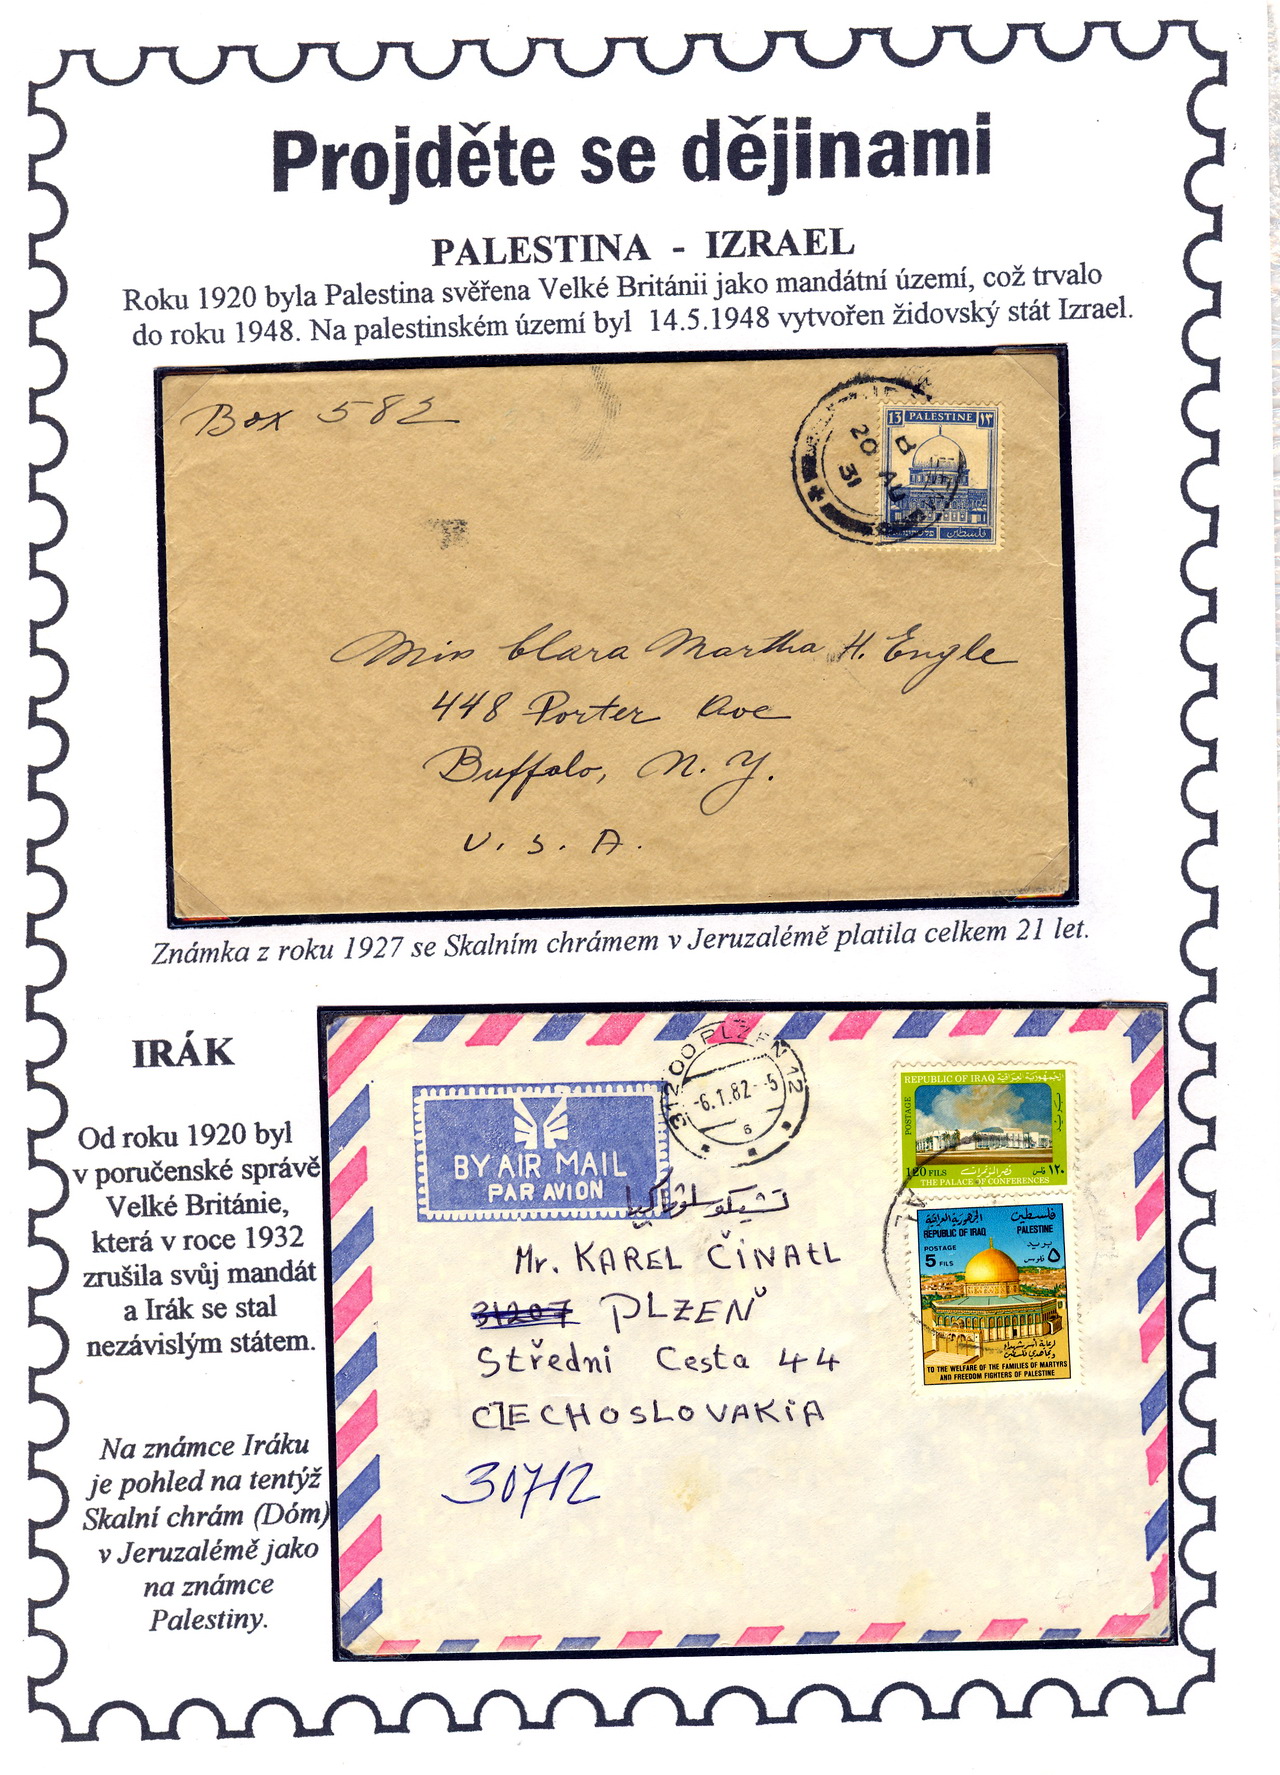 Projděte se dějinami
PALESTINA - IZRAEL
Roku 1920 byla Palestina svěřena Velké Británii jako mandátní území, což trvalo
do roku 1948. Na palestinském území byl 14.5.1948 vytvořen židovský stát Izrael.
Box 582
20 AU
31
13 PALESTINE ١٣
فلسطين
Miss Clara Martha H. Engle
448 Porter Ave
Buffalo, N. Y.
U. S. A.
Známka z roku 1927 se Skalním chrámem v Jeruzalémě platila celkem 21 let.
IRÁK
Od roku 1920 byl
v poručenské správě
Velké Británie,
která v roce 1932
zrušila svůj mandát
a Irák se stal
nezávislým státem.
Na známce Iráku
je pohled na tentýž
Skalní chrám (Dóm)
v Jeruzalémě jako
na známce
Palestiny.
31200 PLZEŇ 12
-6.1.82.-5
6
BY AIR MAIL
PAR AVION
تشيكوسلوفاكيا
Mr. KAREL ČINATL
31207 PLZEŇ
Středni Cesta 44
CZECHOSLOVAKIA
30712
REPUBLIC OF IRAQ الجمهورية العراقية
POSTAGE
120 FILS قصر المؤتمرات ١٢٠ فلس
THE PALACE OF CONFERENCES
الجمهورية العراقية فلسطين
REPUBLIC OF IRAQ PALESTINE
POSTAGE بريد
5 FILS ٥ فلوس
TO THE WELFARE OF THE FAMILIES OF MARTYRS
AND FREEDOM FIGHTERS OF PALESTINE